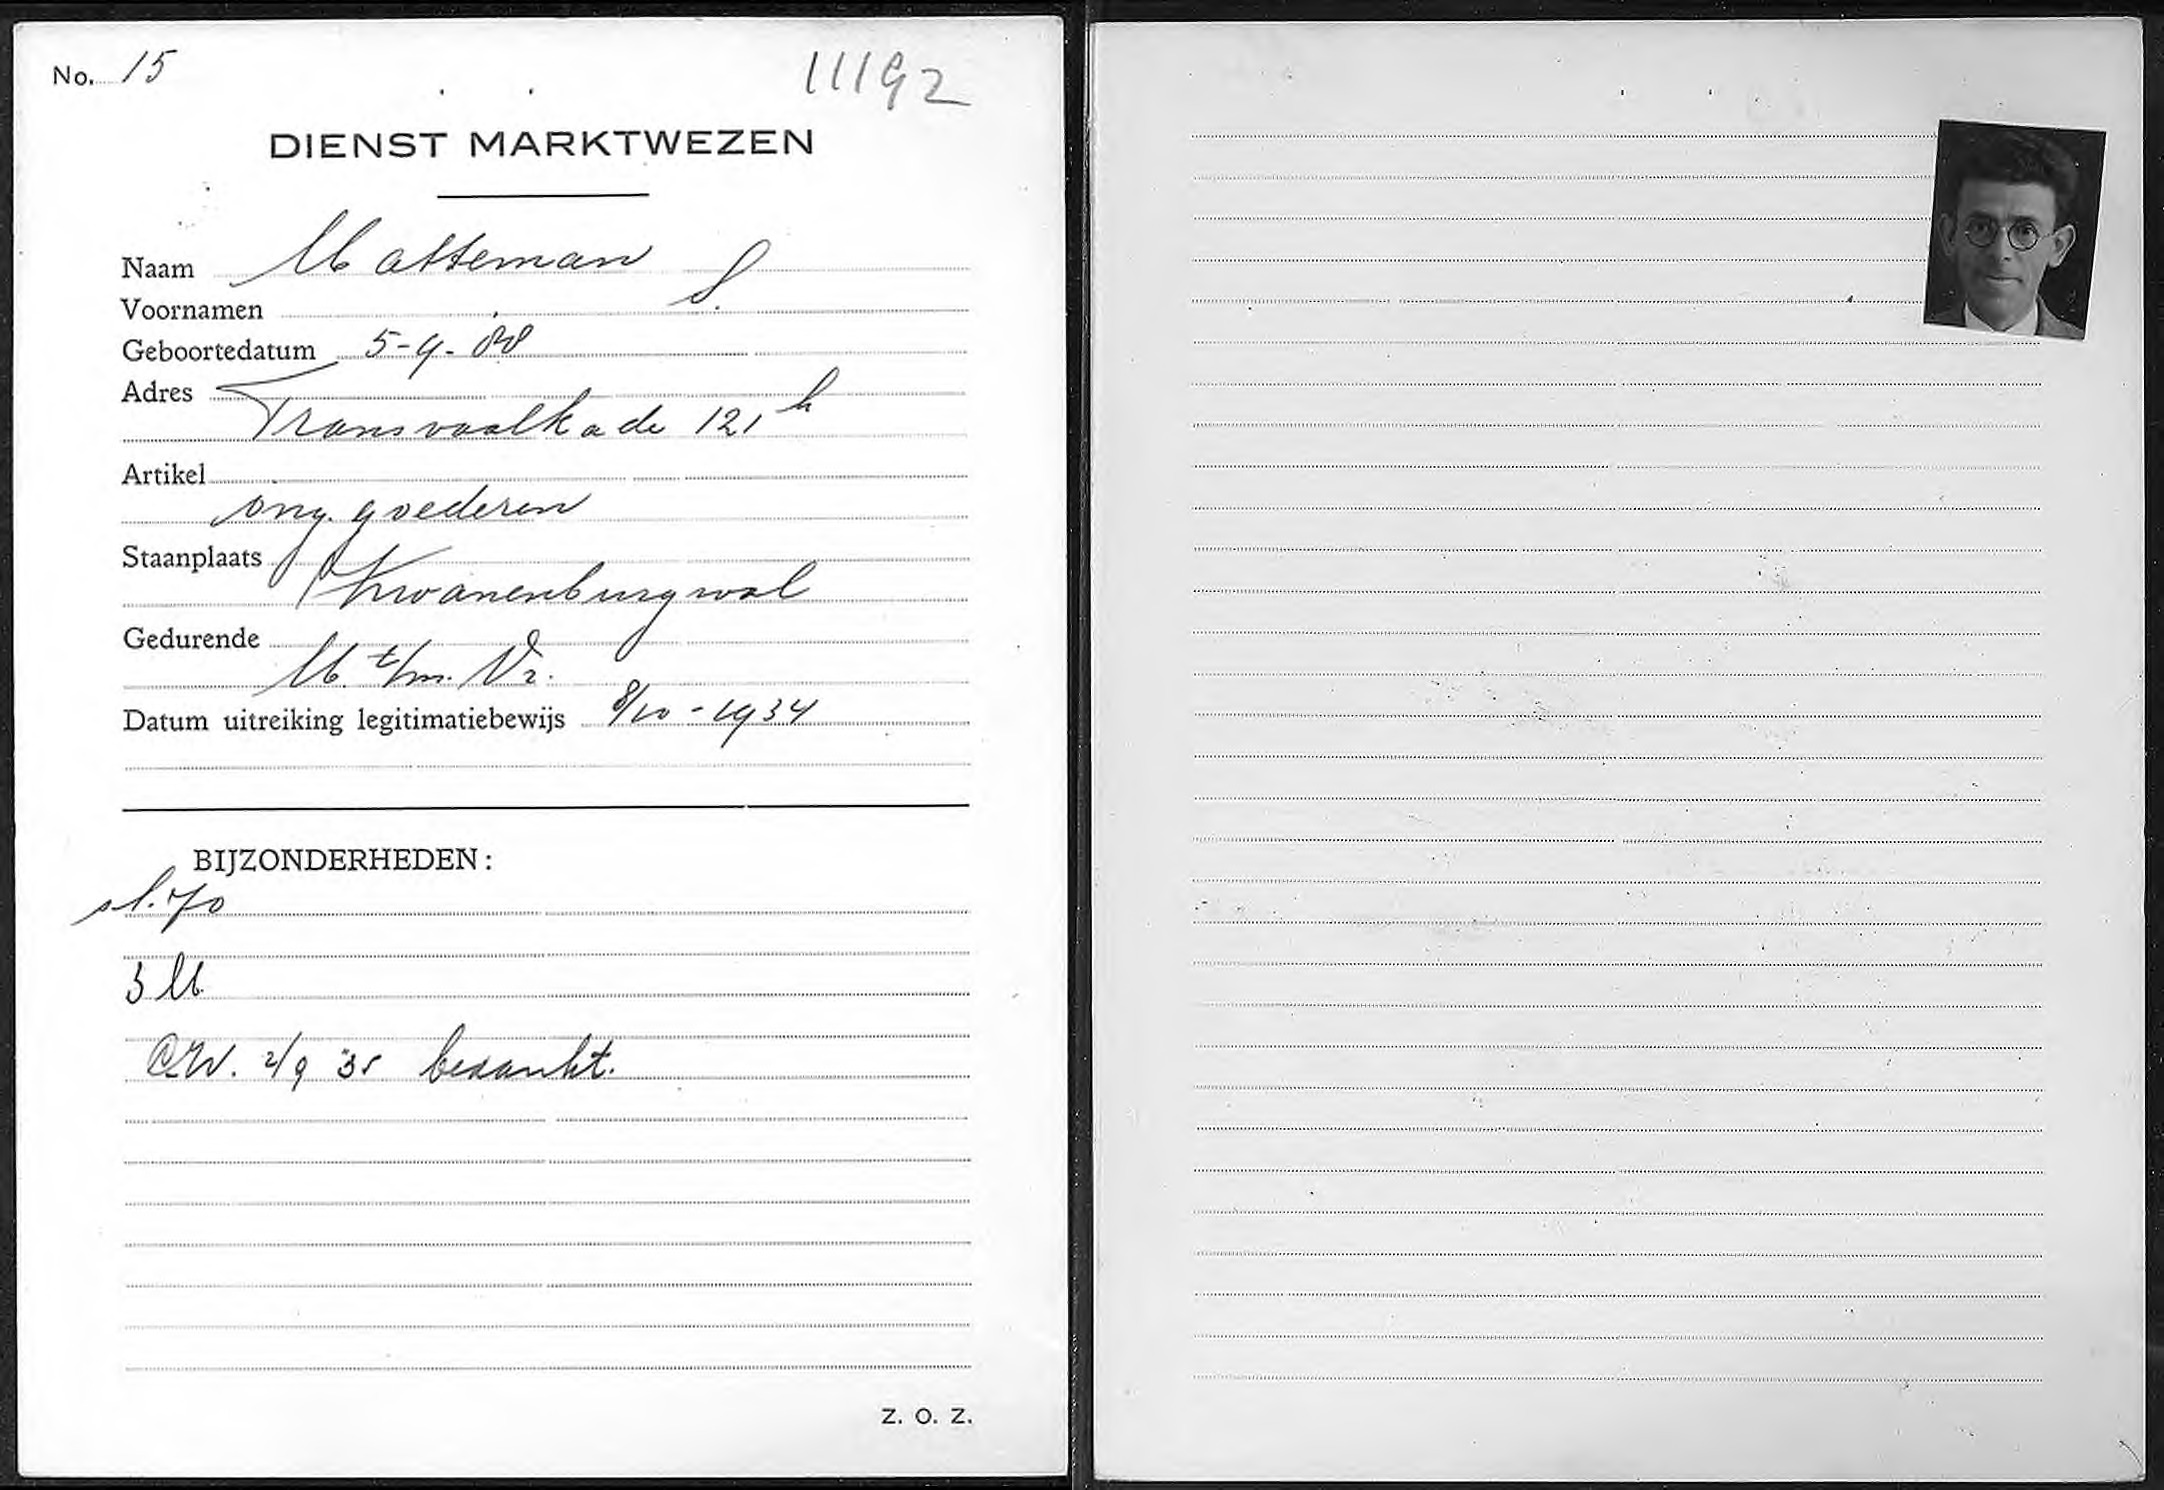 No. 15
11192
DIENST MARKTWEZEN
Naam Matteman
Voornamen S.
Geboortedatum 5-9-
Adres
Transvaalkade 121 h
Artikel
ong. goederen
Staanplaats
Zwanenburgwal
Gedurende
M. t/m. Vr.
Datum uitreiking legitimatiebewijs 8/10-1934
BIJZONDERHEDEN:
pl. 70
3 M.
2/9 '35 bedankt.
Z. O. Z.